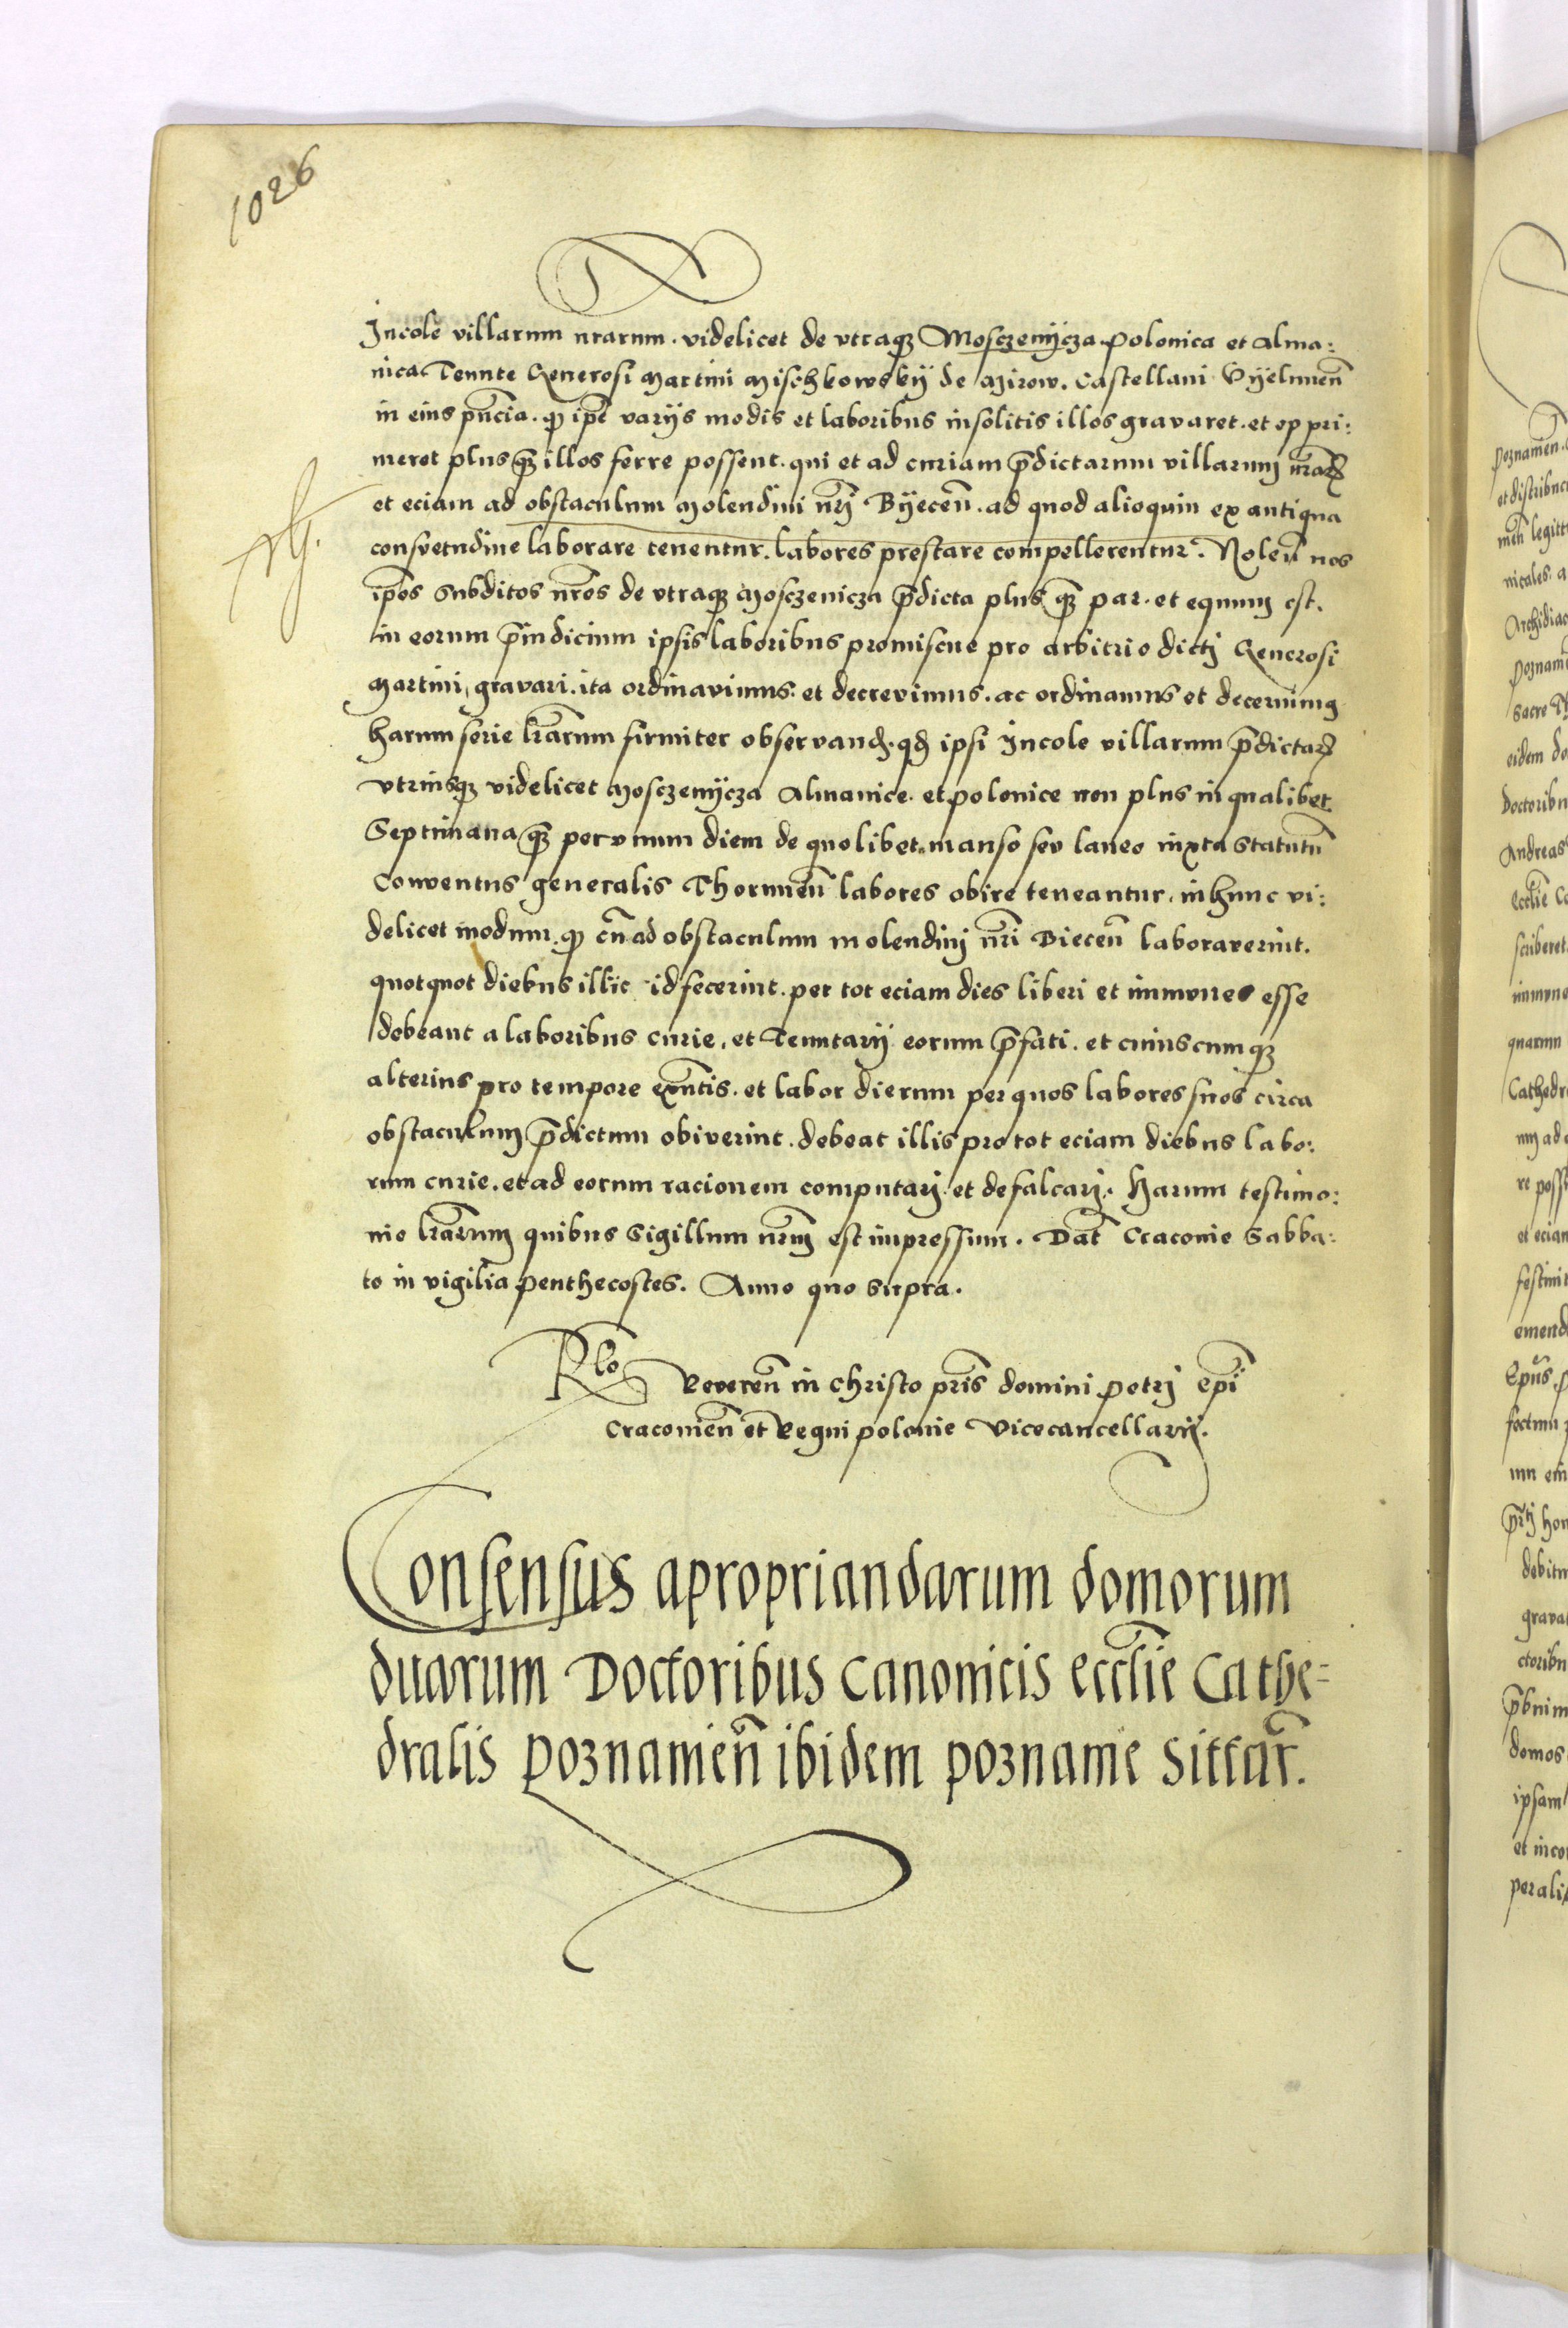 1026
Incole villarum nrarum. videlicet de vtraq3 Mosczenÿcza polonica et Alma:
nica Tennte Generosi Martini Mischkowskÿ de Mirow. Castellani Vÿelunen̄
in eius pn̄cia. q ip̄e varijs modis et laboribus insolitis illos gravaret. et oppri:
meret plus q3 illos ferre possent. qui et ad curiam p̄dictarum villarum nr̄aꝝ
et eciam ad obstaculum Molendini nr̄j Bÿecen̄. ad quod alioquin ex antiqua
consvetudine laborare tenentur. labores prestare compellerentur. Nolen̄ nos
ip̄os subditos nr̄os de vtraq3 Mosczenicza p̄dicta plus q3 par. et equum est.
in eorum p̄iudicium ipsis laboribus promiscue pro arbitrio dictj Generosi
Martini, gravari. ita ordinavimus. et decrevimus. ac ordinamus et decernimꝯ
harum serie lr̄arum firmiter observand. qd ipsi Incole villarum p̄dictaꝝ
vtriusq3 videlicet Mosczenÿcza Almanice. et polonice non plus in qualibet
Septimana q3 per vnum diem de quolibet manso seu laneo iuxta statutū
Conventus generalis Thorunen̄ labores obire teneantur. in hunc vi:
delicet modum. q cū ad obstaculum molendinj nr̄i Biecen̄ laboraverint.
quotquot diebus illic id fecerint. per tot eciam dies liberi et immunes esse
debeant a laboribus curie, et Tenutarij eorum p̄fati. et cuiuscumq3
alterius pro tempore exn̄tis. et labor dierum per quos labores suos circa
obstaculum p̄dictum obiverint. debeat illis pro tot eciam diebus labo:
rum curie. et ad eorum racionem computarj. et defalcarj. Harum testimo:
nio lr̄arum quibus Sigillum nr̄m est impressum. Dat̄ Cracovie Sabba:
to in vigilia penthecostes. Anno quo supra.
Rlo Reveren̄ in christo pr̄is domini petrj ep̄i
Cracovien̄ et Regni polonie Vicecancellarij.
Consensus apropriandarum domorum
duarum Doctoribus Canonicis eccl̄ie Cathe=
dralis Poznanien̄ ibidem poznanie sittar̄.